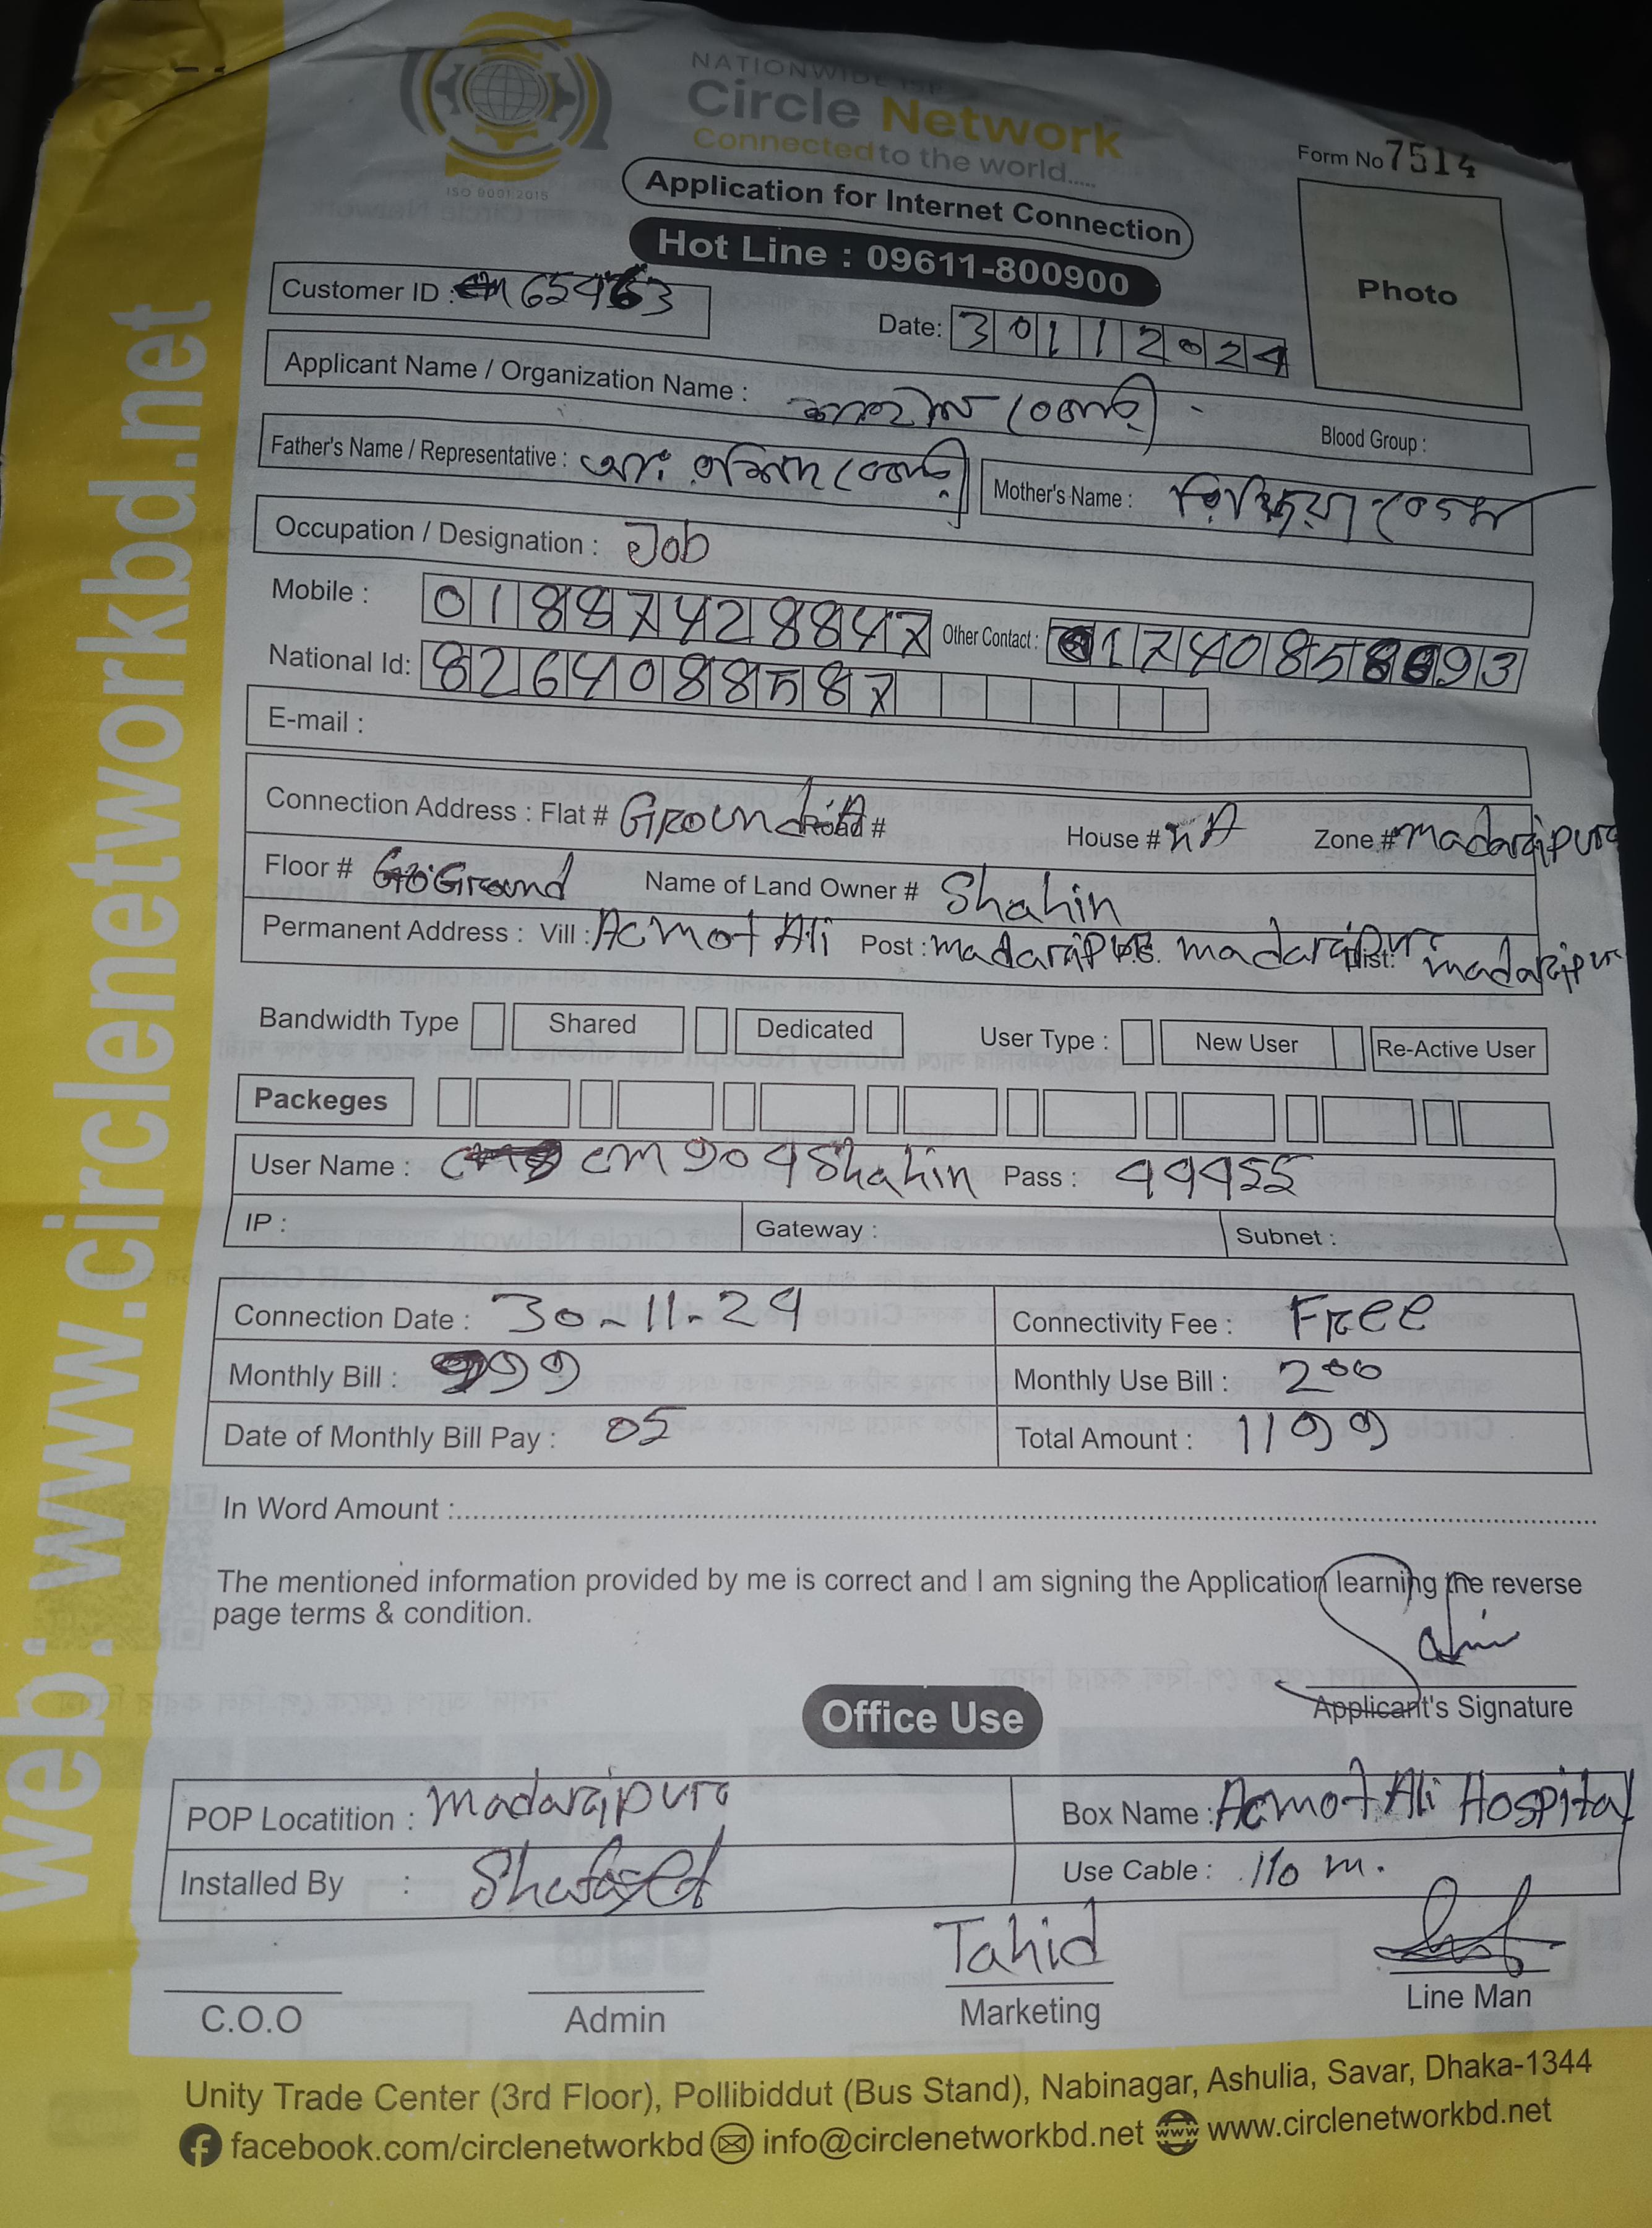 NATIONWIDE ISP
Circle Network
Connected to the world.....
ISO 9001:2015
Form No 7514
Application for Internet Connection
Hot Line : 09611-800900
Photo
Customer ID :
Date: 30112024
Applicant Name / Organization Name :
Blood Group :
Father's Name / Representative :
Mother's Name :
Occupation / Designation : Job
Mobile : 01887428847 Other Contact :
National Id: 8264088587
E-mail :
Connection Address : Flat # Ground Road # House # NA Zone # madaripur
Floor # Ground Name of Land Owner # Shahin
Permanent Address : Vill : Acmot Ali Post : madaripur madaripur Dist: madaripur
Bandwidth Type Shared Dedicated User Type : New User Re-Active User
Packeges
User Name : cm904Shahin Pass : 44455
IP : Gateway : Subnet :
Connection Date : 30-11-24 Connectivity Fee : Free
Monthly Bill : 999 Monthly Use Bill : 200
Date of Monthly Bill Pay : 05 Total Amount : 1199
In Word Amount :
The mentioned information provided by me is correct and I am signing the Application learning the reverse
page terms & condition.
Applicant's Signature
Office Use
POP Locatition : madaripur Box Name : Acmot Ali Hospital
Installed By : Use Cable : 110 m.
Tahid
C.O.O Admin Marketing Line Man
Unity Trade Center (3rd Floor), Pollibiddut (Bus Stand), Nabinagar, Ashulia, Savar, Dhaka-1344
facebook.com/circlenetworkbd info@circlenetworkbd.net www www.circlenetworkbd.net
web: www.circlenetworkbd.net